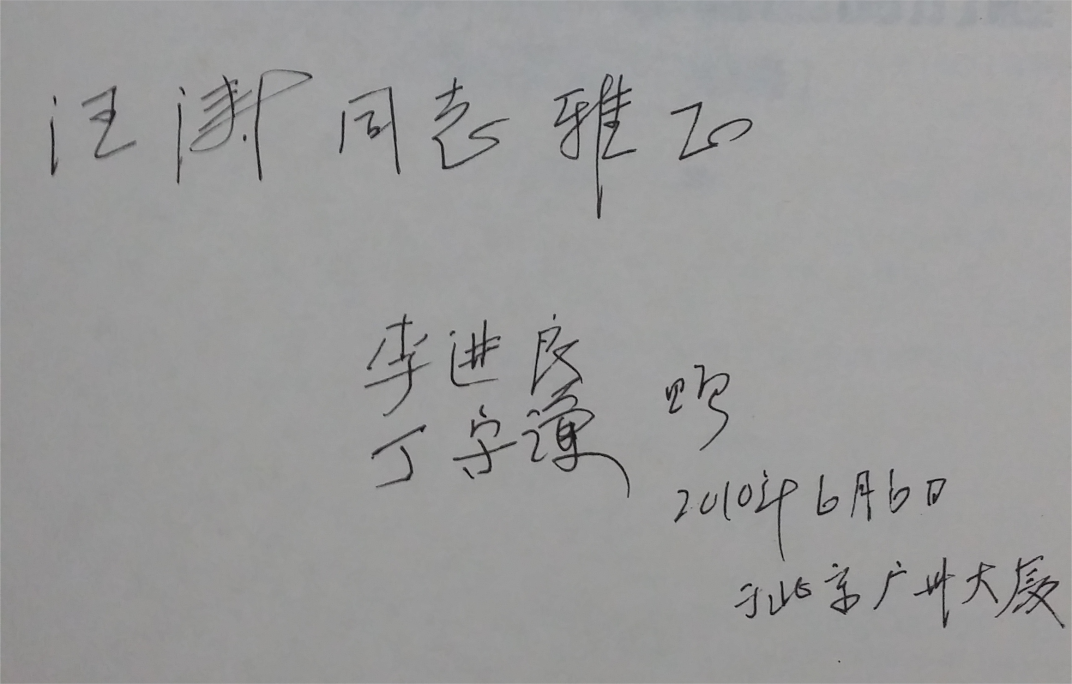 汪涛同志雅正
李进良
丁守谦 赠
2010年6月6日
于北京广州大厦